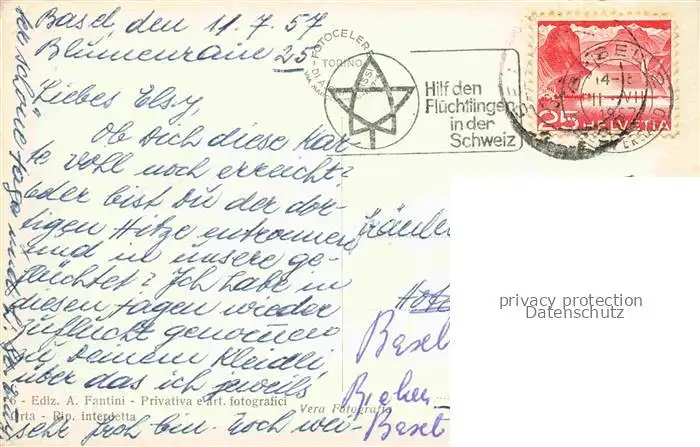 Basel, den 11.7.57
Blumenrain 25
Liebes Elsy,
Ob Dich diese Kar-
te wohl noch erreicht?
Oder bist Du der dor-
tigen Hitze entronnen
und in unsere ge-
flüchtet? Ich habe in
diesen Tagen wieder
Zuflucht genommen
zu Deinem Kleidli,
über das ich jeweils
sehr froh bin. Noch wei-
schöne Tage und
FOTOCELERE
TORINO
Hilf den
Flüchtlingen
in der
Schweiz
25 HELVETIA
BASEL
Fräulein
Hotel
Basel
Basel
privacy protection
Datenschutz
6 - Ediz. A. Fantini - Privativa e art. fotografici
Rip. interdetta
Vera Fotografia